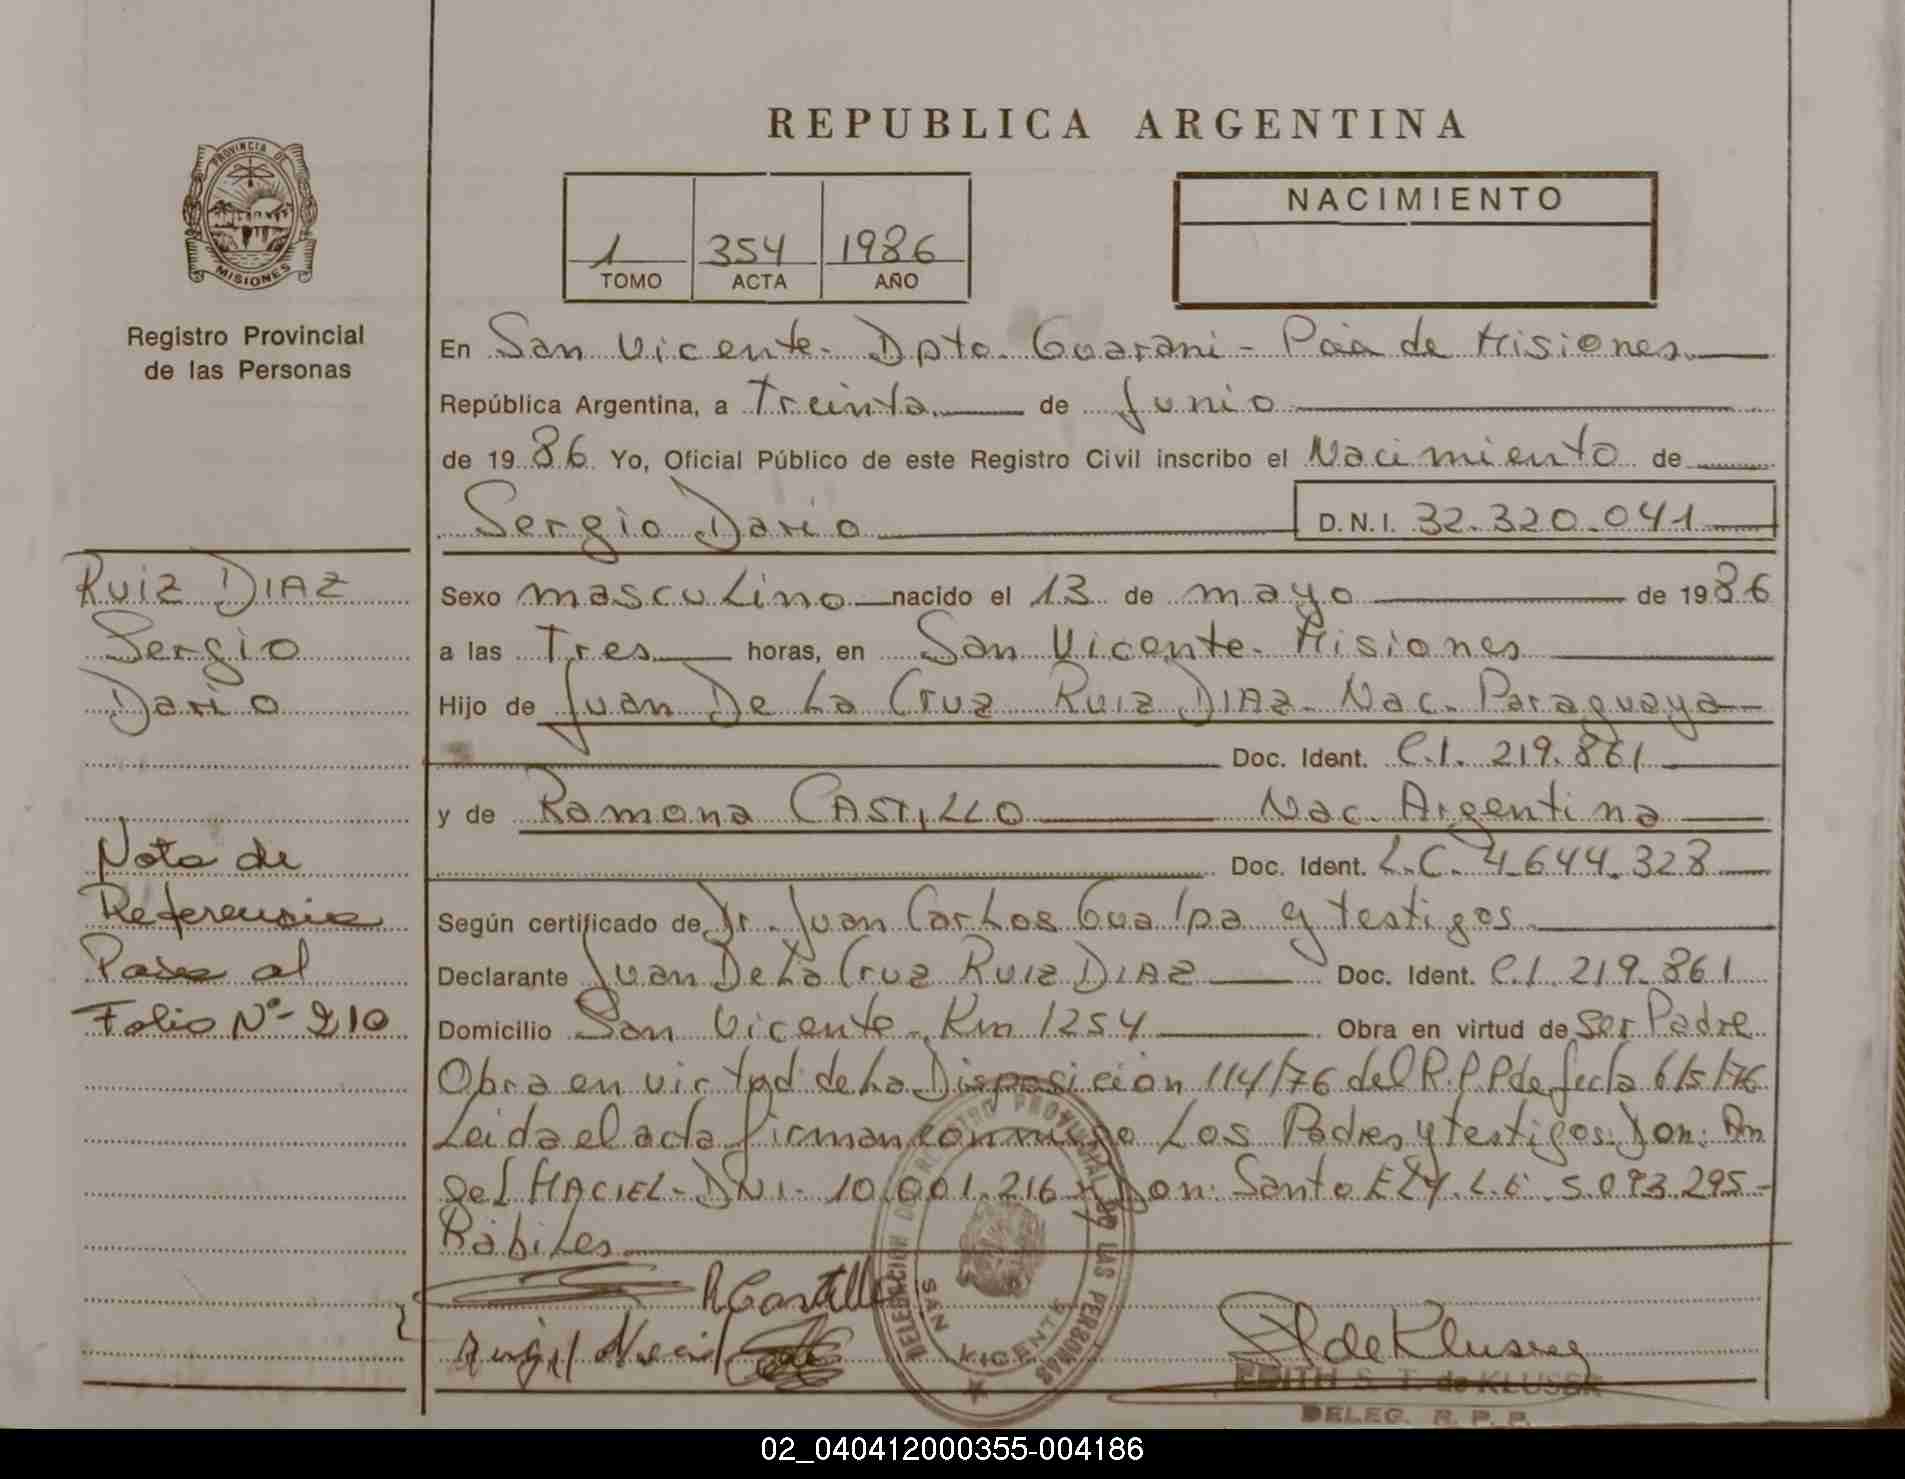 REPUBLICA ARGENTINA
PROVINCIA DE
MISIONES
Registro Provincial
de las Personas
1 354 1986
TOMO ACTA AÑO
NACIMIENTO
En San Vicente. Dpto. Guarani - Pcia de Misiones
República Argentina, a Treinta de Junio
de 1986 Yo, Oficial Público de este Registro Civil inscribo el Nacimiento de
Sergio Dario D.N.I. 32.320.041
RUIZ DIAZ
Sergio
Dario
Nota de
Referencia
Pase al
Folio Nº- 210
Sexo masculino nacido el 13 de mayo de 1986
a las Tres horas, en San Vicente. Misiones
Hijo de Juan De La Cruz RUIZ DIAZ. Nac. Paraguaya
Doc. Ident. C.I. 219.861
y de Ramona CASTILLO Nac. Argentina
Doc. Ident. L.C. 4.644.328
Según certificado de Dr. Juan Carlos Gualpa y testigos
Declarante Juan De La Cruz RUIZ DIAZ Doc. Ident. C.I. 219.861
Domicilio San Vicente. Km 1254 Obra en virtud de Ser Padre
Obra en virtud de La Disposición 114/76 del R.P.P de fecha 6/5/76
Leida el acta firman conmigo Los Padres y testigos: Don: An
gel MACIEL - DNI. 10.001.216 y Don: Santo ELY. L.E. 5.093.295-
Rábiles
R Castillo
DELEGACION DE REGISTRO PROVINCIAL DE LAS PERSONAS
SAN VICENTE
de Kluser
EDITH S. T. de KLUSER
DELEG. R. P. P.
02_040412000355-004186